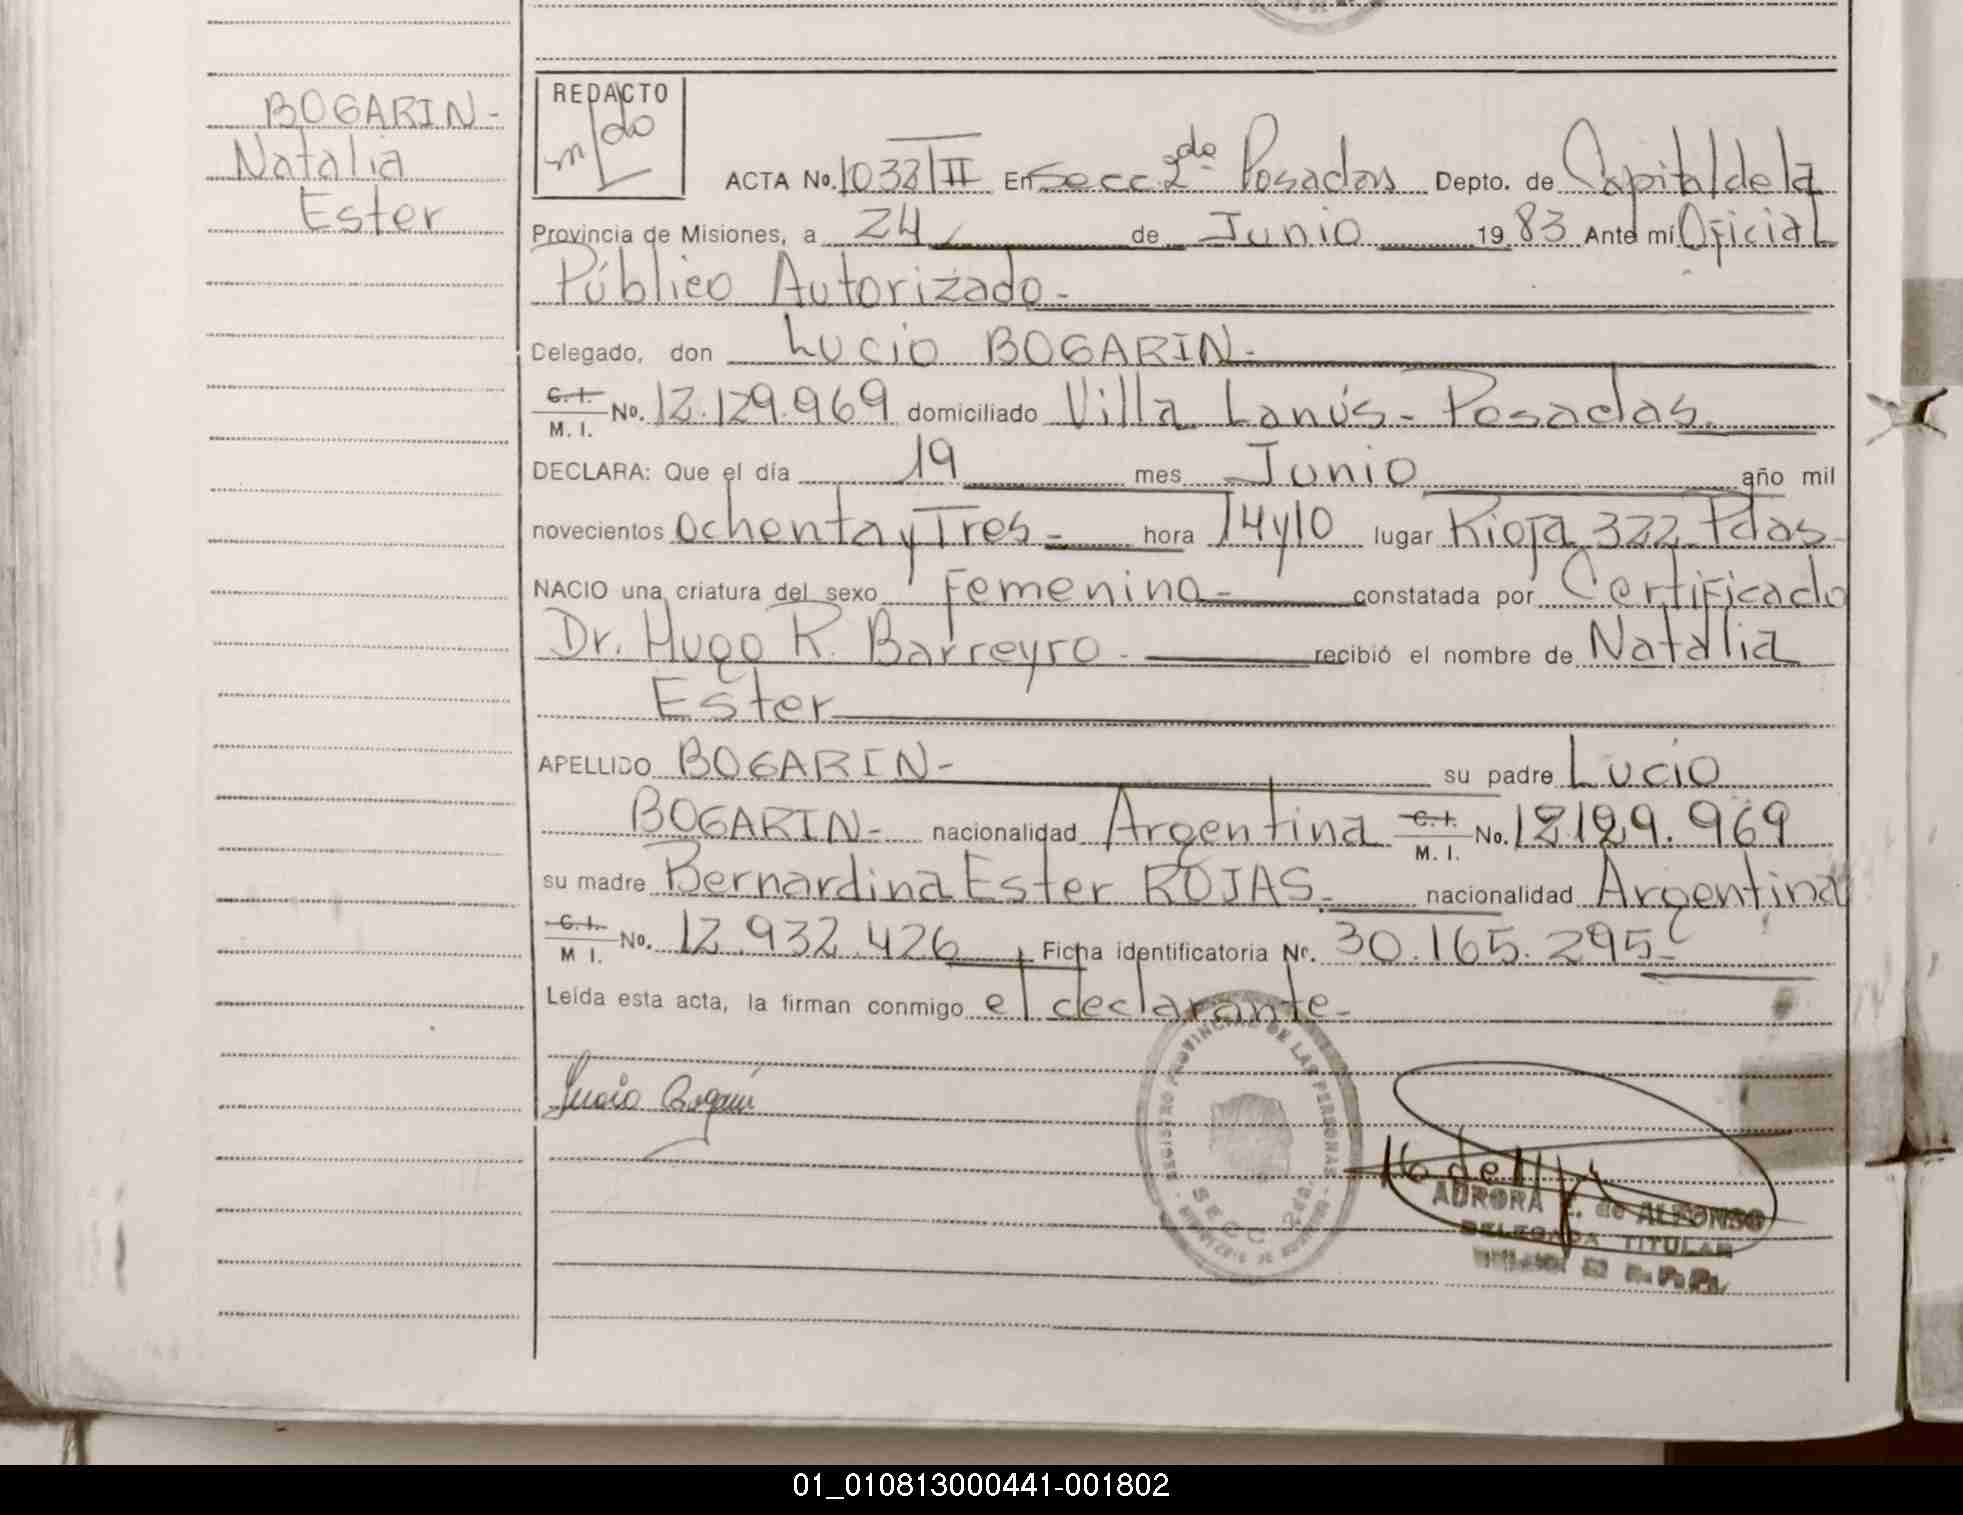 BOGARIN-
Natalia
Ester
REDACTO
m/do
ACTA No. 1038/II En Secc. 2da Posadas Depto. de Capital de la
Provincia de Misiones, a 24 de Junio 1983 Ante mí Oficial
Público Autorizado-
Delegado, don Lucio BOGARIN-
C.I. / M. I. No. 12.129.969 domiciliado Villa Lanús- Posadas.
DECLARA: Que el día 19 mes Junio año mil
novecientos ochenta y Tres- hora 14y10 lugar Rioja 322 Pdas-
NACIO una criatura del sexo Femenino- constatada por Certificado
Dr. Hugo R. Barreyro- recibió el nombre de Natalia
Ester
APELLIDO BOGARIN- su padre Lucio
BOGARIN- nacionalidad Argentina C.I. / M. I. No. 12.129.969
su madre Bernardina Ester ROJAS- nacionalidad Argentina
C.I. / M I. No. 12.932.426 Ficha identificatoria Nr. 30.165.295-
Leída esta acta, la firman conmigo el declarante-
Lucio Bogarin
REGISTRO PROVINCIAL DE LAS PERSONAS
SECC. 2da
AURORA de ALFONSO
DELEGADA TITULAR
01_010813000441-001802